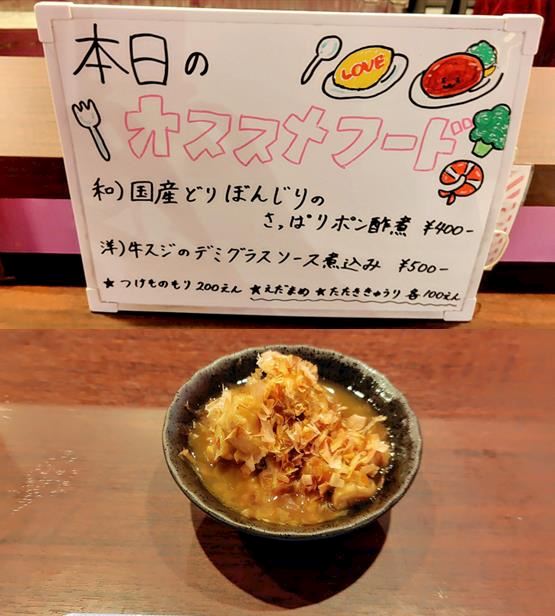 本日の
LOVE
オススメフード
和)国産どりぼんじりの
さっぱりポン酢煮 ¥400-
洋)牛スジのデミグラスソース煮込み ¥500-
★つけものもり200えん ★えだまめ ★たたききゅうり 各100えん